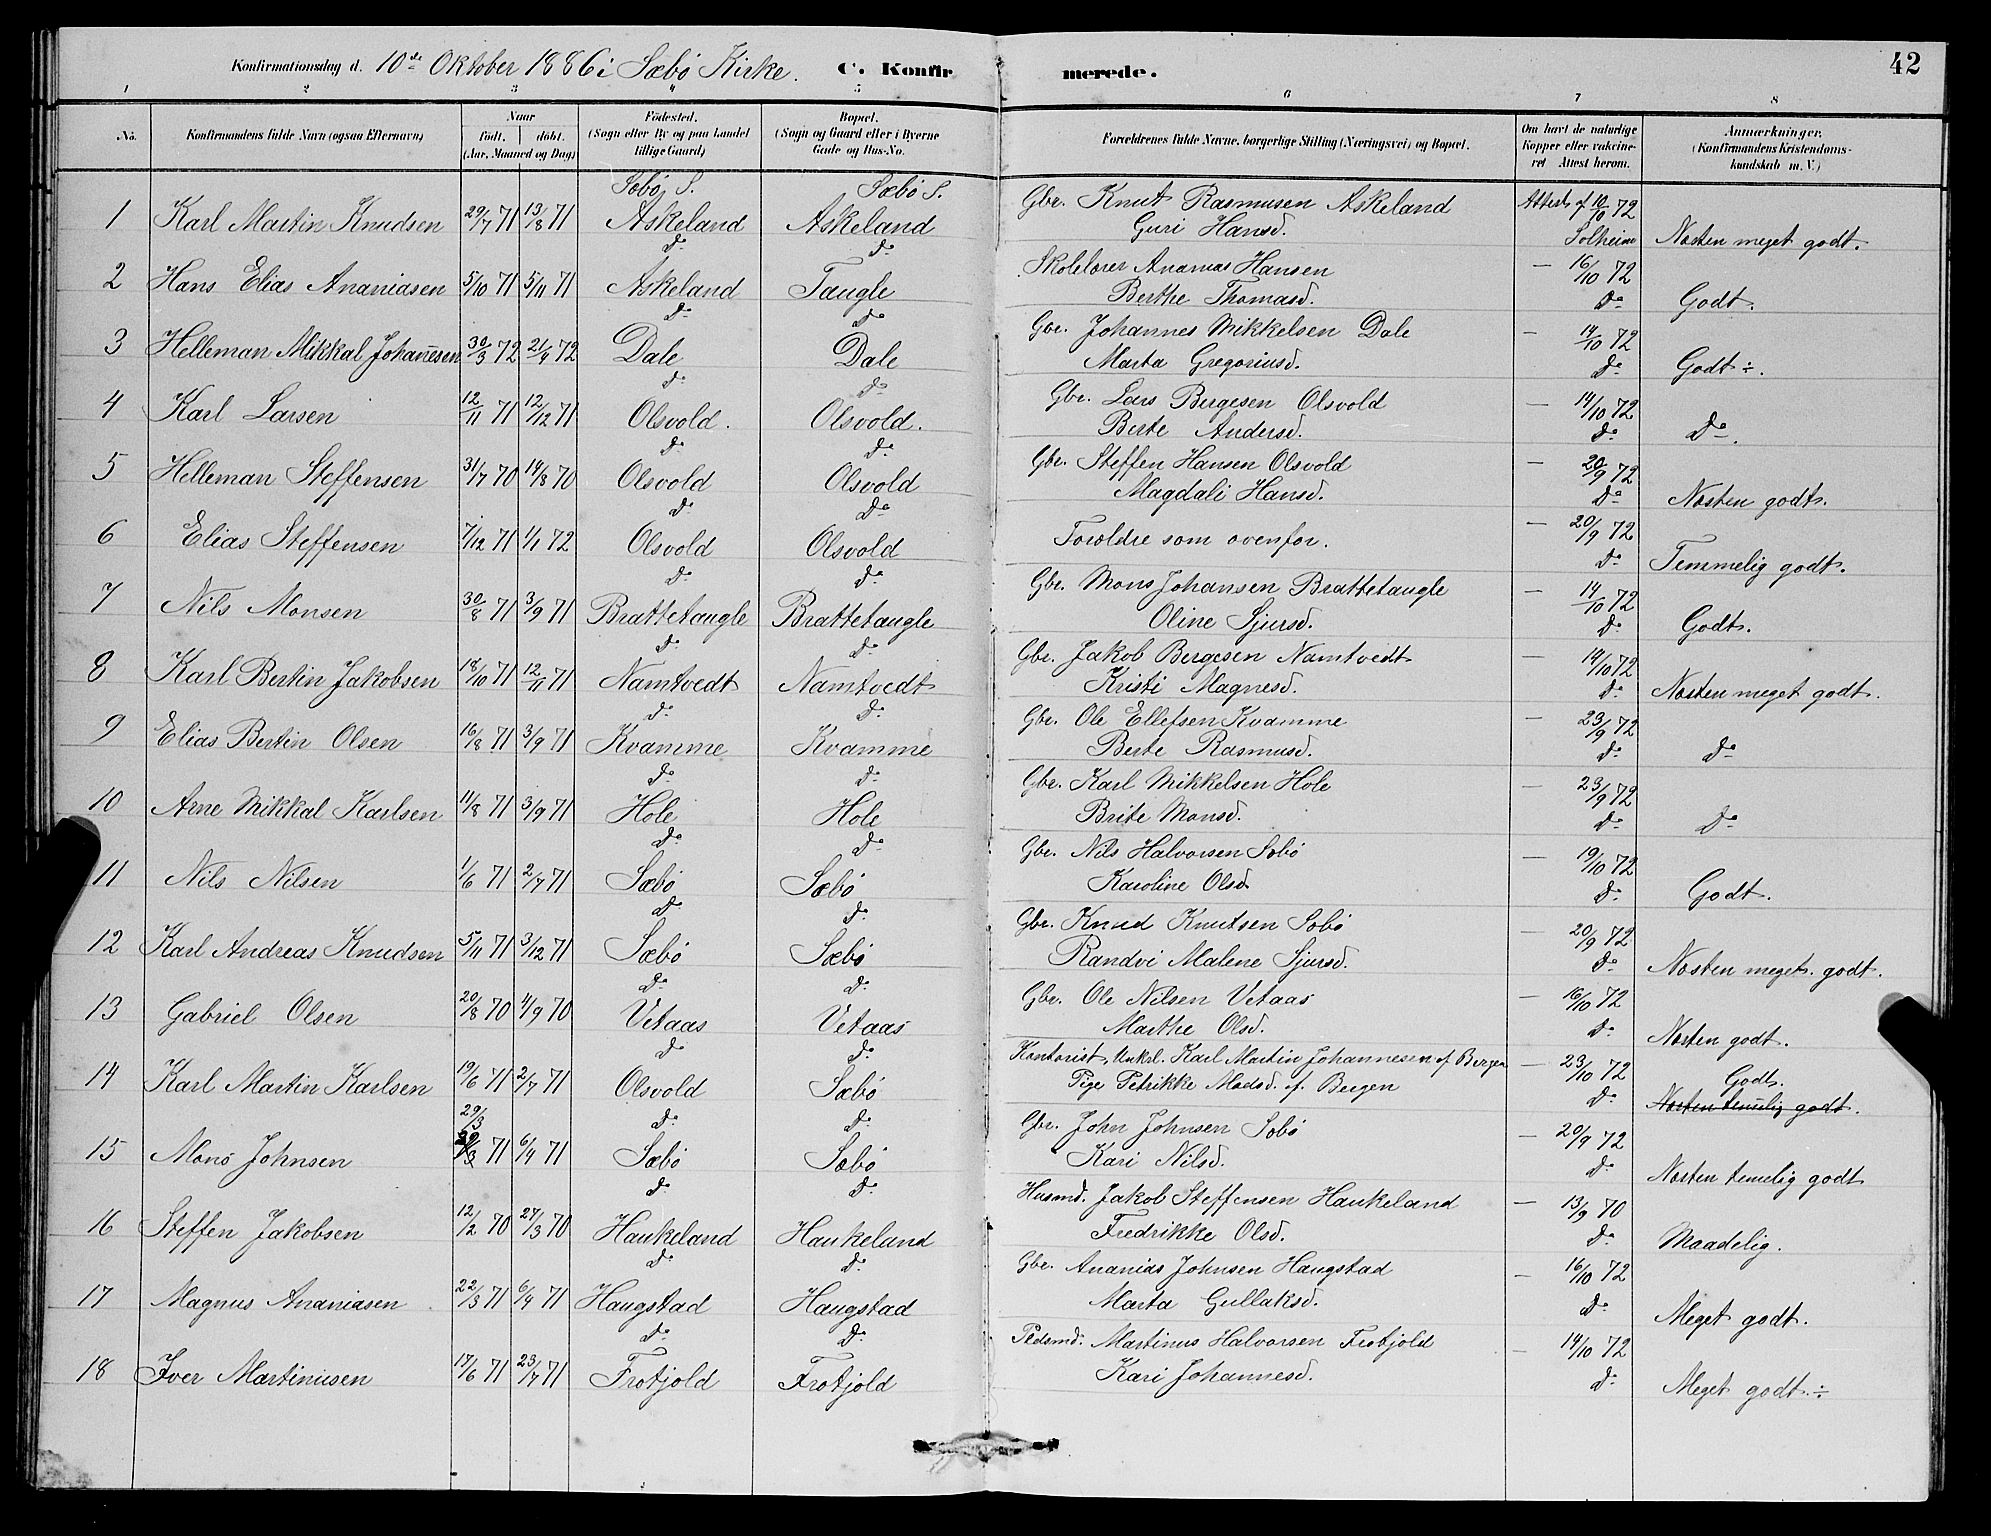 42
Konfirmationsdag d. 10de Oktober 1886 i Sæbö Kirke. C. Konfirmerede.
1 2 3 4 5 6 7 8
No. Konfirmandens fulde Navn (ogsaa Efternavn) Naar födt. döbt. (Aar, Maaned og Dag) Födested. (Sogn eller By og paa Landet tillige Gaard) Bopæl. (Sogn og Gaard eller i Byerne Gade og Hus-No. Forældrenes fulde Navne, borgerlige Stilling (Næringsvei) og Bopæl. Om havt de naturlige Kopper eller vakcineret Attest herom. Anmærkninger. (Konfirmandens Kristendomskundskab m. V.)
Sæbö S. Sæbö S.
1 Karl Martin Knudsen 29/7 71 13/8 71 Askeland Askeland Gbr. Knut Rasmusen Askeland Attest af 10/10 72
Guri Hansd. Solheim Næsten meget godt.
do do
2 Hans Elias Ananiasen 5/10 71 5/11 71 Askeland Taugle Skolelærer Ananias Hansen — 16/10 72
Berthe Thomasd. do Godt.
do do
3 Helleman Mikkal Johanesen 30/3 72 21/4 72 Dale Dale Gbr. Johannes Mikkelsen Dale — 14/10 72
Marta Gregoriusd. do Godt ÷.
do do
4 Karl Larsen 12/11 71 12/12 71 Olsvold. Olsvold. Gbr. Lars Bergesen Olsvold — 14/10 72
Berte Andersd. do do.
do do
5 Helleman Steffensen 31/7 70 14/8 70 Olsvold Olsvold Gbr. Steffen Hansen Olsvold — 20/9 72
Magdali Hansd. do Næsten godt.
do do
6 Elias Steffensen 7/12 71 1/1 72 Olsvold Olsvold Forældre som ovenfor. — 20/9 72
do Temmelig godt.
do do
7 Nils Monsen 30/8 71 3/9 71 Brattetaugle Brattetaugle Gbr. Mons Johansen Brattetaugle — 14/10 72
Oline Sjursd. do Godt.
do do
8 Karl Bertin Jakobsen 18/10 71 12/11 71 Namtvedt Namtvedt Gbr. Jakob Bergesen Namtvedt — 14/10 72
Kristi Magnesd. do Næsten meget godt.
do do
9 Elias Bertin Olsen 16/8 71 3/9 71 Kvamme Kvamme Gbr. Ole Ellefsen Kvamme — 23/9 72
Berte Rasmusd. do do
do do
10 Arne Mikkal Karlsen 11/8 71 3/9 71 Hole Hole Gbr. Karl Mikkelsen Hole — 23/9 72
Brite Monsd. do do
do do
11 Nils Nilsen 1/6 71 2/7 71 Sæbö Sæbö Gbr. Nils Halvorsen Sæbö — 19/10 72
Karoline Olsd. do Godt.
do do
12 Karl Andreas Knudsen 5/11 71 3/12 71 Sæbö Sæbö Gbr. Knud Knutsen Sæbö — 20/9 72
Randvi Malene Sjursd. do Næsten meget godt.
do do
13 Gabriel Olsen 20/8 70 4/9 70 Vetaas Vetaas Gbr. Ole Nilsen Vetaas — 16/10 72
Marthe Olsd. do Næsten godt.
do do
14 Karl Martin Karlsen 19/6 71 2/7 71 Olsvold Sæbö Kontorist, Unkrl. Karl Martin Johannesen af Bergen — 23/10 72 Godt.
Pige Petrikke Madsd. af Bergen do Næsten temelig godt.
29/3 do do
15 Mons Johnsen 71 6/4 71 Sæbö Sæbö Gbr. John Johnsen Sæbö — 20/9 72
Kari Nilsd. do Næsten temelig godt
do do
16 Steffen Jakobsen 12/2 70 27/3 70 Haukeland Haukeland Husmd. Jakob Steffensen Haukeland — 13/9 70
Fredrikke Olsd. do Maadelig.
do do
17 Magnus Ananiasen 22/3 71 6/4 71 Haugstad Haugstad Gbr. Ananias Johnsen Haugstad — 16/10 72
Marta Gullaksd. do Meget godt.
do do
18 Iver Martinusen 17/6 71 23/7 71 Frotjold Frotjold Pladsmd. Martinus Halvorsen Frotjold — 14/10 72
Kari Johannesd. do Meget godt ÷